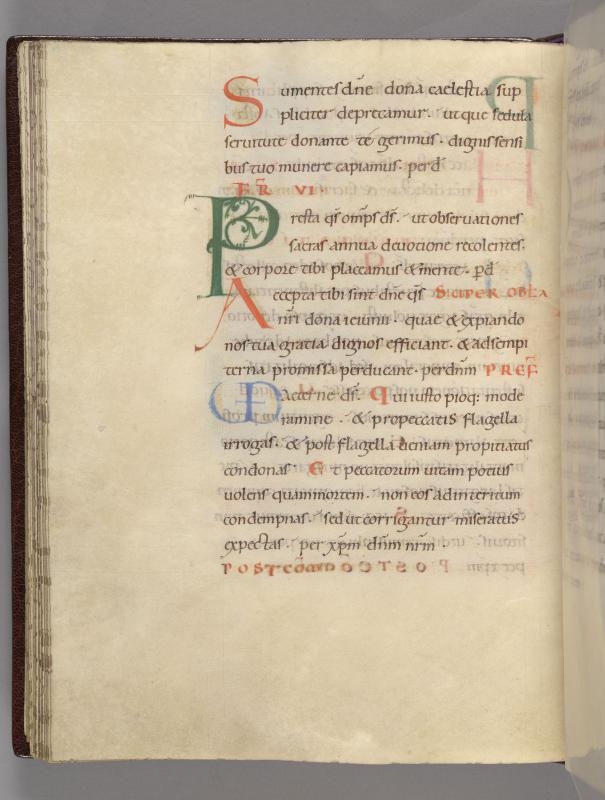 Sumentes dñe dona caelestia sup
pliciter deprecamur. ut que sedula
seruitute donante te gerimus. dignis sensi
bus tuo munere capiamus. perd̄
FER̃ VI.
Presta q̄s omp̄s d̄s. ut obseruationes
sacras annua deuotione recolentes.
& corpore tibi placeamus & mente. pd̄
Accepta tibi sint dñe q̄s SUPER OBLA
nr̄i dona ieiunii. quae & expiando
nos tua gratia dignos efficiant. & ad sempi
terna promissa perducant. perdñm PREF̄
Aeterne d̄s. Qui iusto pioq; mode
ramine. & pro peccatis flagella
irrogas. & post flagella ueniam propitiatus
condonas. Et peccatorum uitam potius
uolens quam mortem. non eos ad interitum
condempnas. sed ut corrigantur miseratus
expectas. per xp̄m dñm nr̄m.
POSTCŌM